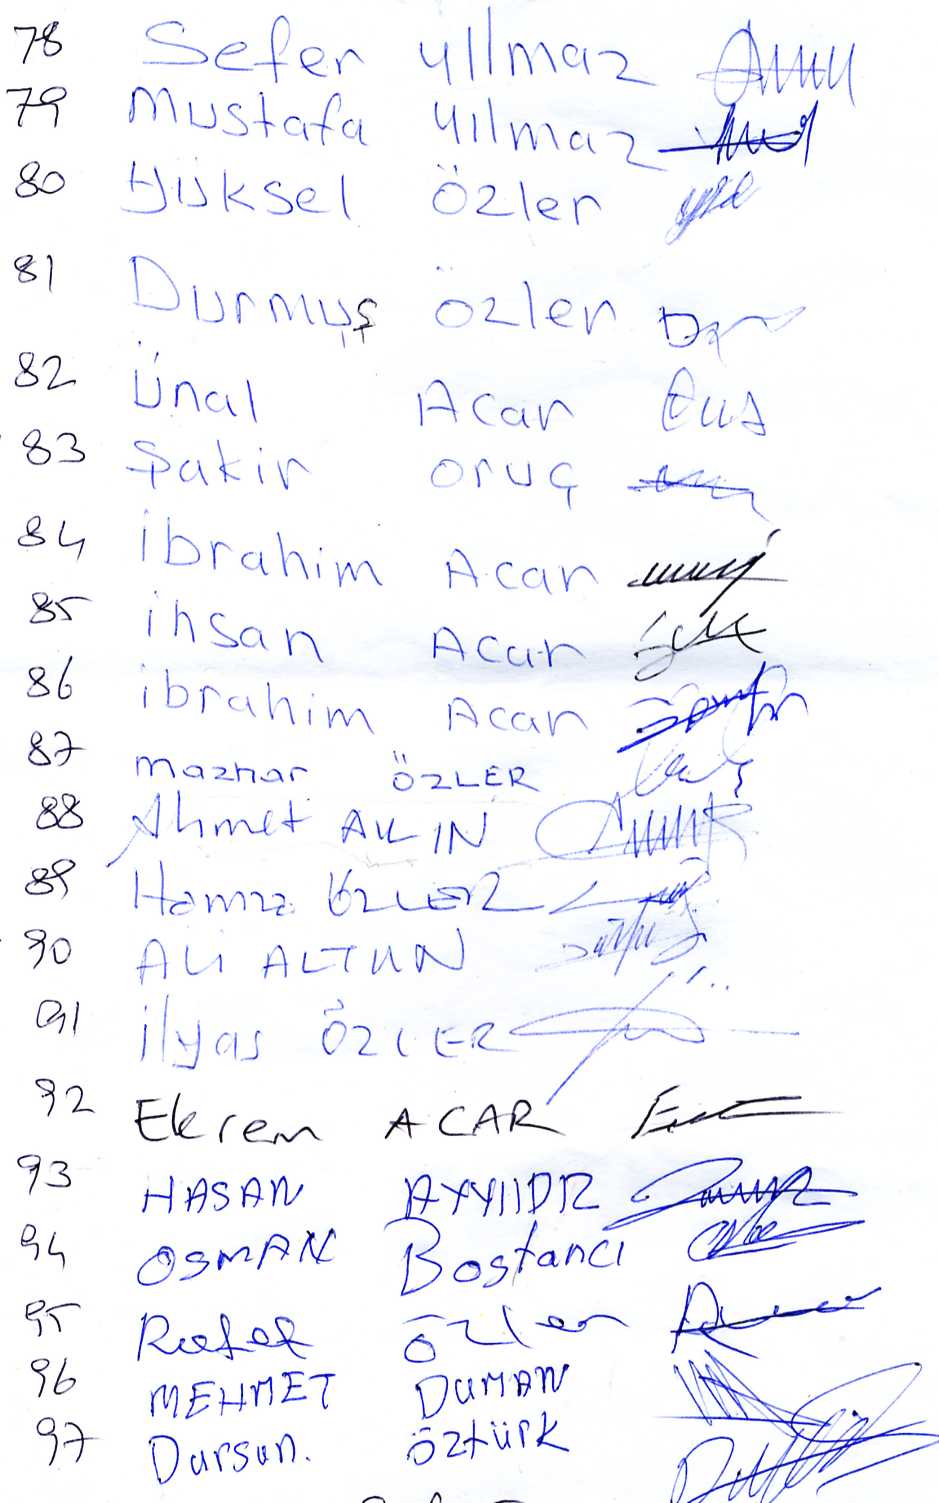 78 Sefer yılmaz
79 Mustafa yılmaz
80 Yüksel Özler
81 Durmuş Özler
82 Ünal Acar
83 Şakir oruç
84 İbrahim Acar
85 İhsan Acar
86 İbrahim Acar
87 Mazhar ÖZLER
88 Ahmet
89 Hamza ÖZLER
90 ALİ ALTUN
91 İlyas ÖZLER
92 Ekrem ACAR
93 HASAN AYYIIDIZ
94 OSMAN Bostancı
95 Rafet özler
96 MEHMET DUMAN
97 Dursun. öztürk